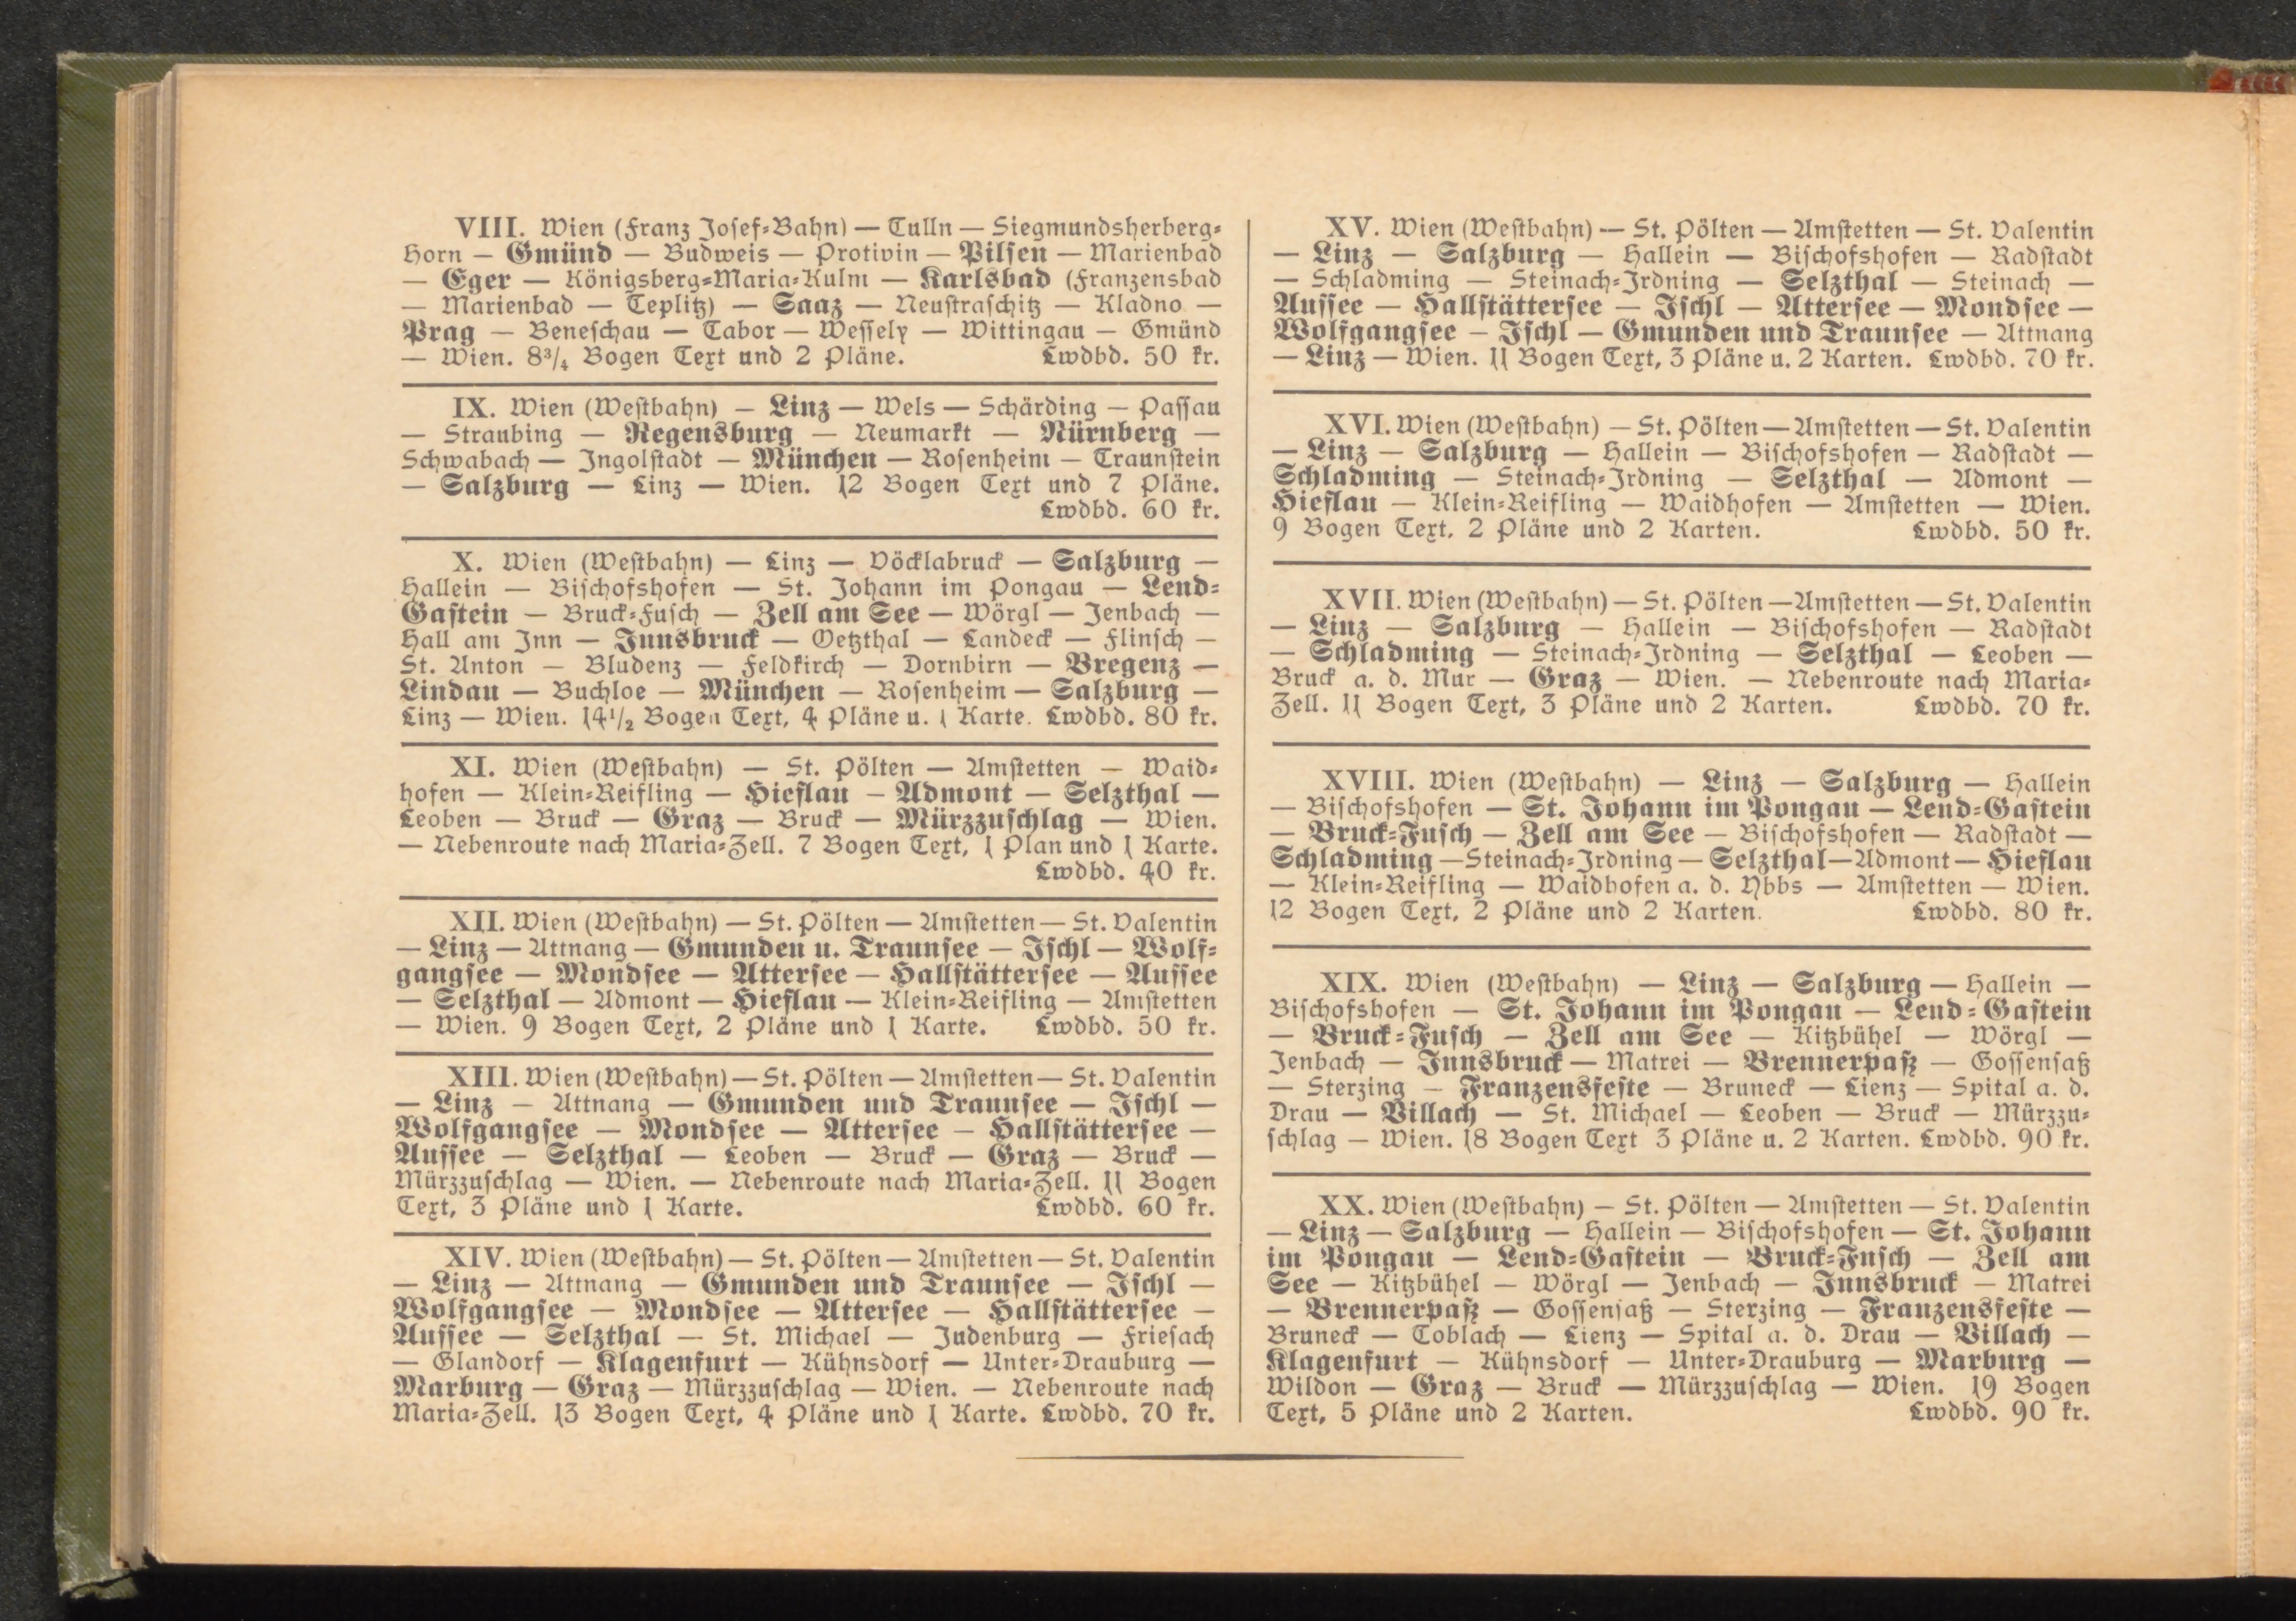 VIII. Wien (Franz Josef-Bahn) — Tulln — Siegmundsherberg-
Horn — Gmünd — Budweis — Protivin — Pilsen — Marienbad
— Eger — Königsberg-Maria-Kulm — Karlsbad (Franzensbad
— Marienbad — Teplitz) — Saaz — Neustraschitz — Kladno —
Prag — Beneschau — Tabor — Wessely — Wittingau — Gmünd
— Wien. 8¾ Bogen Text und 2 Pläne. Lwdbd. 50 kr.
IX. Wien (Westbahn) — Linz — Wels — Schärding — Passau
— Straubing — Regensburg — Neumarkt — Nürnberg —
Schwabach — Ingolstadt — München — Rosenheim — Traunstein
— Salzburg — Linz — Wien. 12 Bogen Text und 7 Pläne.
Lwdbd. 60 kr.
X. Wien (Westbahn) — Linz — Vöcklabruck — Salzburg —
Hallein — Bischofshofen — St. Johann im Pongau — Lend-
Gastein — Bruck-Fusch — Zell am See — Wörgl — Jenbach —
Hall am Inn — Innsbruck — Oetzthal — Landeck — Flinsch —
St. Anton — Bludenz — Feldkirch — Dornbirn — Bregenz —
Lindau — Buchloe — München — Rosenheim — Salzburg —
Linz — Wien. 14½ Bogen Text, 4 Pläne u. 1 Karte. Lwdbd. 80 kr.
XI. Wien (Westbahn) — St. Pölten — Amstetten — Waid-
hofen — Klein-Reifling — Hieflau — Admont — Selzthal —
Leoben — Bruck — Graz — Bruck — Mürzzuschlag — Wien.
— Nebenroute nach Maria-Zell. 7 Bogen Text, 1 Plan und 1 Karte.
Lwdbd. 40 kr.
XII. Wien (Westbahn) — St. Pölten — Amstetten — St. Valentin
— Linz — Attnang — Gmunden u. Traunsee — Ischl — Wolf-
gangsee — Mondsee — Attersee — Hallstättersee — Aussee
— Selzthal — Admont — Hieflau — Klein-Reifling — Amstetten
— Wien. 9 Bogen Text, 2 Pläne und 1 Karte. Lwdbd. 50 kr.
XIII. Wien (Westbahn) — St. Pölten — Amstetten — St. Valentin
— Linz — Attnang — Gmunden und Traunsee — Ischl —
Wolfgangsee — Mondsee — Attersee — Hallstättersee —
Aussee — Selzthal — Leoben — Bruck — Graz — Bruck —
Mürzzuschlag — Wien. — Nebenroute nach Maria-Zell. 11 Bogen
Text, 3 Pläne und 1 Karte. Lwdbd. 60 kr.
XIV. Wien (Westbahn) — St. Pölten — Amstetten — St. Valentin
— Linz — Attnang — Gmunden und Traunsee — Ischl —
Wolfgangsee — Mondsee — Attersee — Hallstättersee —
Aussee — Selzthal — St. Michael — Judenburg — Friesach
— Glandorf — Klagenfurt — Kühnsdorf — Unter-Drauburg —
Marburg — Graz — Mürzzuschlag — Wien. — Nebenroute nach
Maria-Zell. 13 Bogen Text, 4 Pläne und 1 Karte. Lwdbd. 70 kr.
XV. Wien (Westbahn) — St. Pölten — Amstetten — St. Valentin
— Linz — Salzburg — Hallein — Bischofshofen — Radstadt
— Schladming — Steinach-Irdning — Selzthal — Steinach —
Aussee — Hallstättersee — Ischl — Attersee — Mondsee —
Wolfgangsee — Ischl — Gmunden und Traunsee — Attnang
— Linz — Wien. 11 Bogen Text, 3 Pläne u. 2 Karten. Lwdbd. 70 kr.
XVI. Wien (Westbahn) — St. Pölten — Amstetten — St. Valentin
— Linz — Salzburg — Hallein — Bischofshofen — Radstadt —
Schladming — Steinach-Irdning — Selzthal — Admont —
Hieflau — Klein-Reifling — Waidhofen — Amstetten — Wien.
9 Bogen Text, 2 Pläne und 2 Karten. Lwdbd. 50 kr.
XVII. Wien (Westbahn) — St. Pölten — Amstetten — St. Valentin
— Linz — Salzburg — Hallein — Bischofshofen — Radstadt
— Schladming — Steinach-Irdning — Selzthal — Leoben —
Bruck a. d. Mur — Graz — Wien. — Nebenroute nach Maria-
Zell. 11 Bogen Text, 3 Pläne und 2 Karten. Lwdbd. 70 kr.
XVIII. Wien (Westbahn) — Linz — Salzburg — Hallein
— Bischofshofen — St. Johann im Pongau — Lend-Gastein
— Bruck-Fusch — Zell am See — Bischofshofen — Radstadt —
Schladming — Steinach-Irdning — Selzthal — Admont — Hieflau
— Klein-Reifling — Waidhofen a. d. Ybbs — Amstetten — Wien.
12 Bogen Text, 2 Pläne und 2 Karten. Lwdbd. 80 kr.
XIX. Wien (Westbahn) — Linz — Salzburg — Hallein —
Bischofshofen — St. Johann im Pongau — Lend-Gastein
— Bruck-Fusch — Zell am See — Kitzbühel — Wörgl —
Jenbach — Innsbruck — Matrei — Brennerpaß — Gossensaß
— Sterzing — Franzensfeste — Bruneck — Lienz — Spital a. d.
Drau — Villach — St. Michael — Leoben — Bruck — Mürzzu-
schlag — Wien. 18 Bogen Text 3 Pläne u. 2 Karten. Lwdbd. 90 kr.
XX. Wien (Westbahn) — St. Pölten — Amstetten — St. Valentin
— Linz — Salzburg — Hallein — Bischofshofen — St. Johann
im Pongau — Lend-Gastein — Bruck-Fusch — Zell am
See — Kitzbühel — Wörgl — Jenbach — Innsbruck — Matrei
— Brennerpaß — Gossensaß — Sterzing — Franzensfeste —
Bruneck — Toblach — Lienz — Spital a. d. Drau — Villach —
Klagenfurt — Kühnsdorf — Unter-Drauburg — Marburg —
Wildon — Graz — Bruck — Mürzzuschlag — Wien. 19 Bogen
Text, 5 Pläne und 2 Karten. Lwdbd. 90 kr.